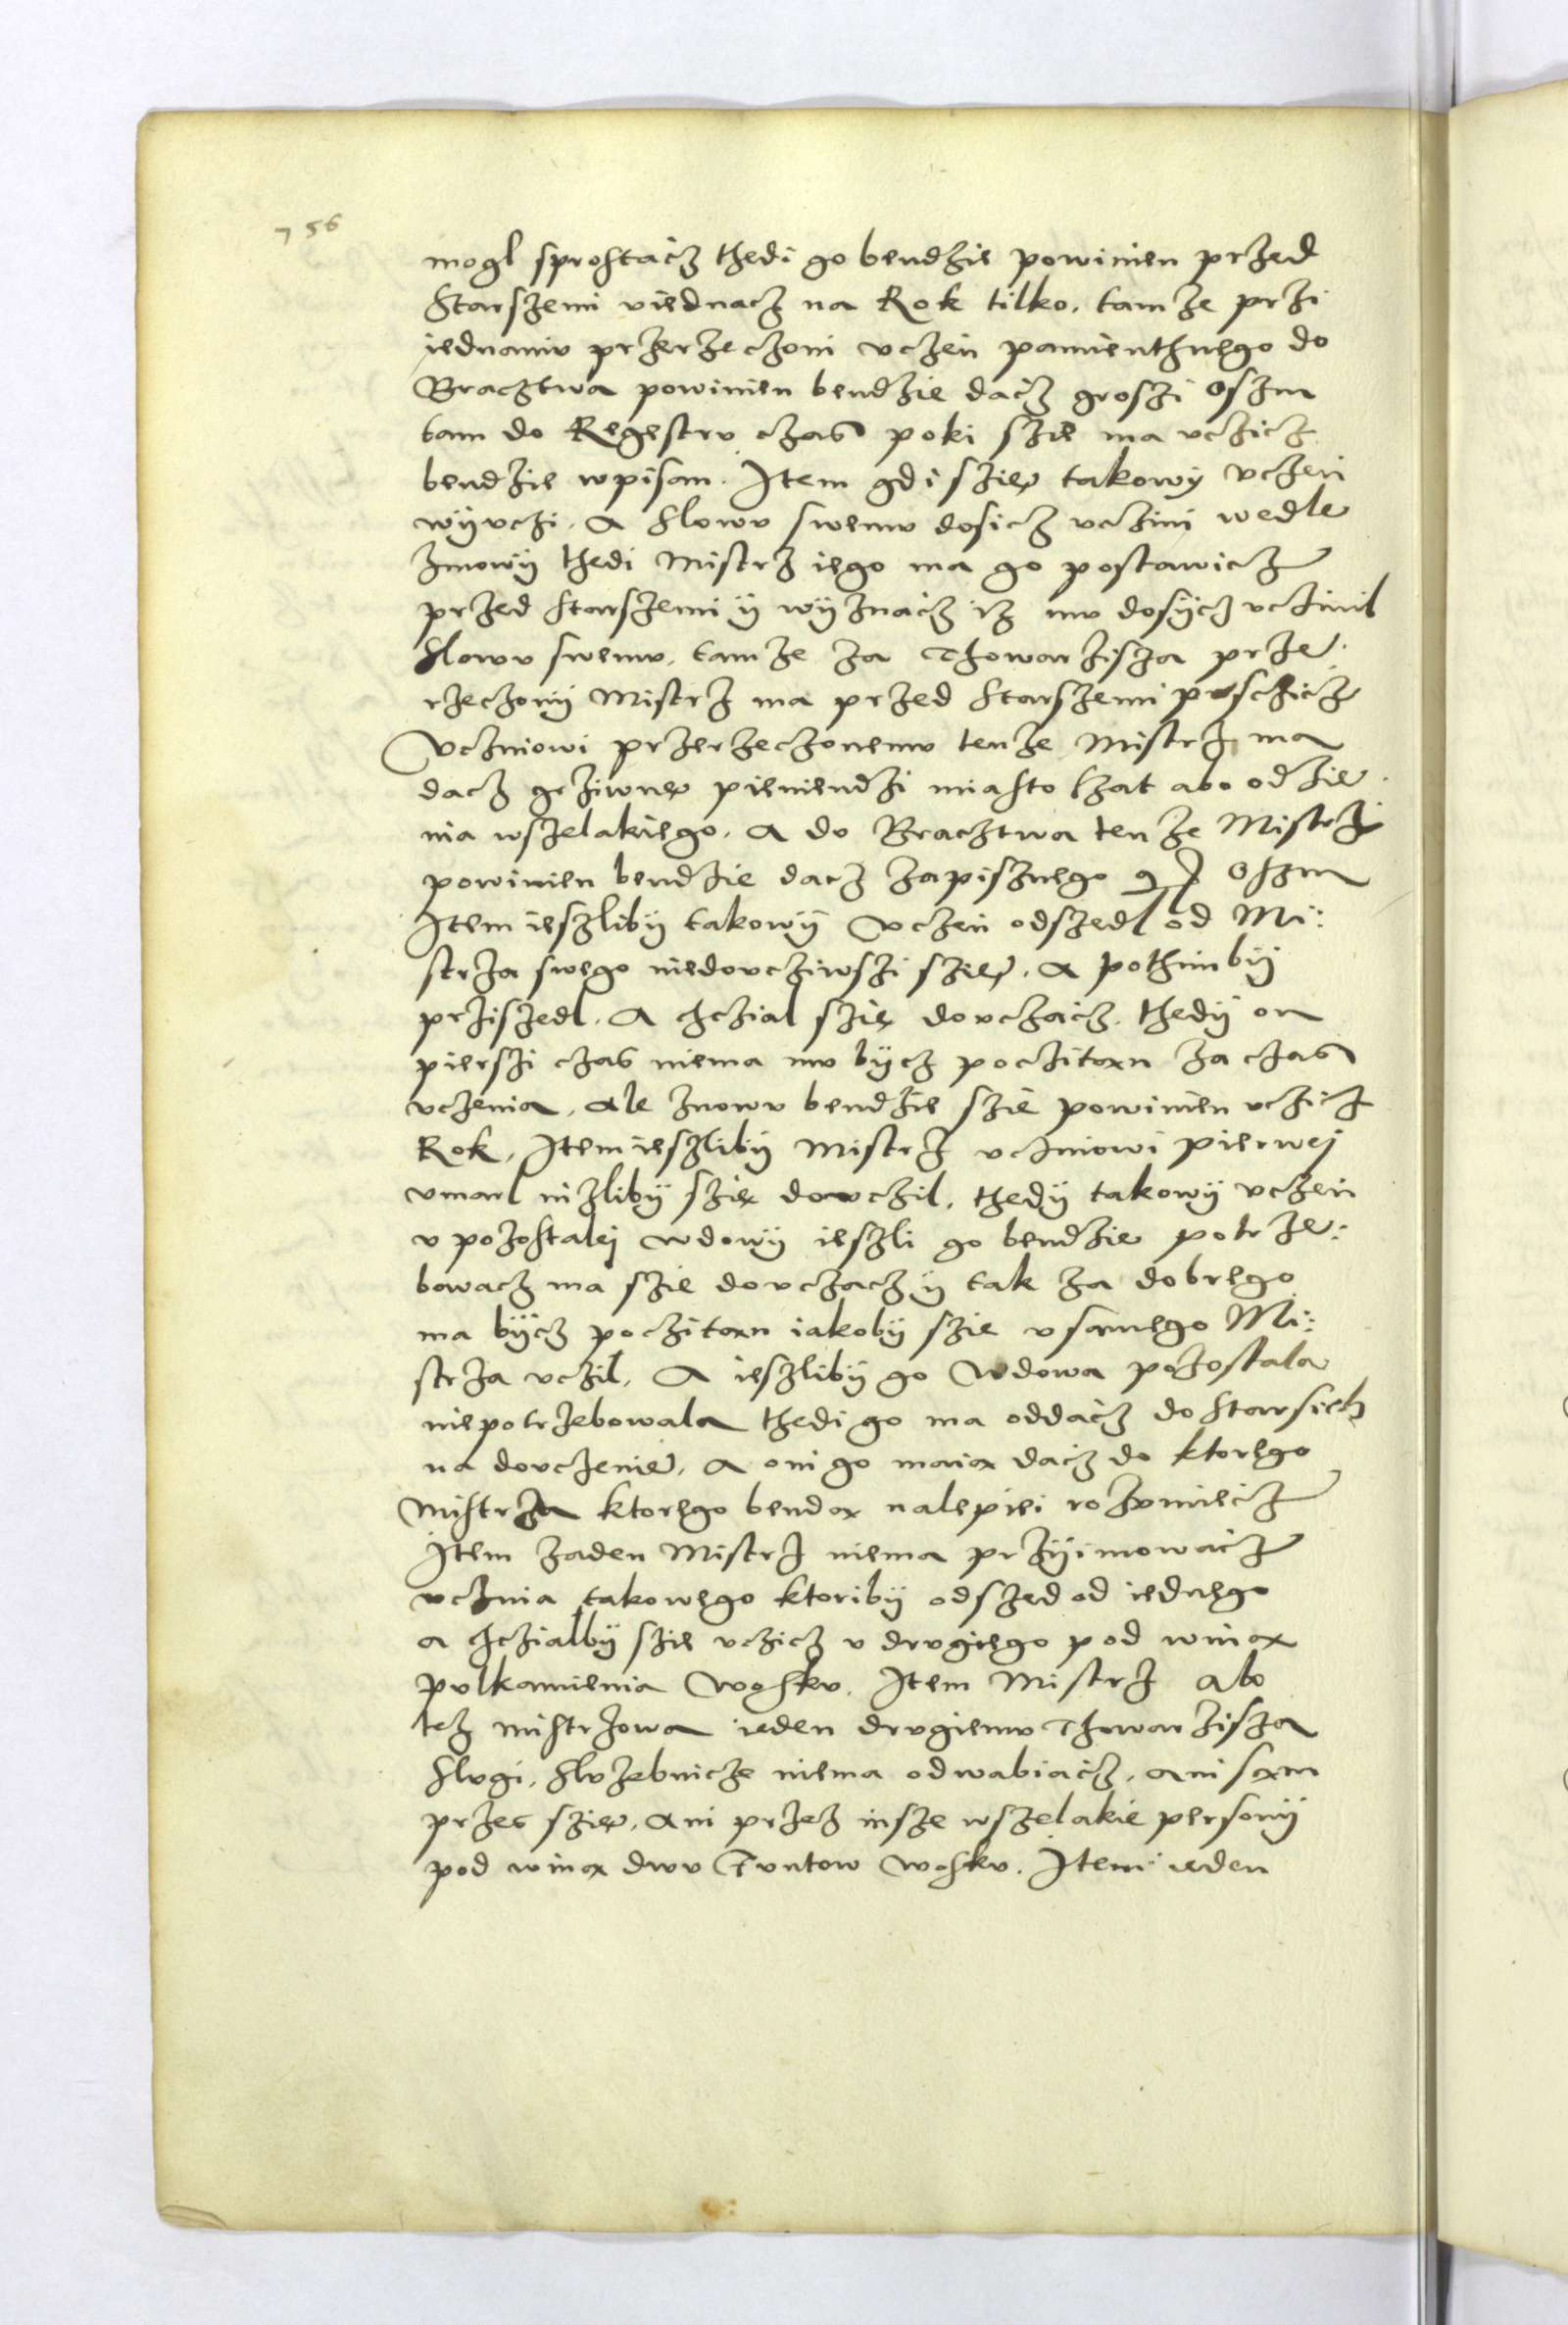 756
mogl sprostacz thedi go bendzie powinien przed
Starszemi uiednacz na Rok tilko. tamze przi
iednaniu przerzeczoni uczen pamienthnego do
Bracztwa powinien bendzie dacz groszi oszm
tam do Regestru czas poki szie ma uczicz
bendzie wpisan. Item gdi szie takowÿ uczen
wÿuczi. A slowu swemu dosicz uczini wedle
zmowÿ thedi Mistrz iego ma go postawicz
przed starszemi ÿ wÿznacz iz mu dosÿcz uczinil
slowu swemu. tamze za Thowarzisza prze
rzeczonÿ Mistrz ma przed starszemi pusczicz
Uczniowi przerzeczonemu tenze Mistrz ma
dacz grziwne pieniendzi miasto szat abo odzie
nia wszelakiego. A do Bracztwa tenze Mistrz
powinien bendzie dacz zapisznego gl oszm
Item ieszlibÿ takowÿ Uczen odszedl od Mi:
strza swego niedouczÿwszi szie. A pothimbÿ
prziszedl. A chczial szie douczacz. thedÿ on
pierszi czas niema mu bÿcz poczitan za czas
uczenia. Ale znowu bendzie szie powinien uczicz
Rok. Item ieszlibÿ Mistrz uczniowi pierwej
umarl niżlibÿ szie douczil. thedÿ takowÿ uczen
u pozostalej wdowÿ ieszli go bendzie potrze:
bowacz ma szie douczacz ÿ tak za dobrego
ma bÿcz poczitan iakobÿ szie u samego Mi:
strza uczil. A ieszlibÿ go Wdowa pozostala
niepotrzebowala thedi go ma oddacz do starsich
na douczenie. A oni go maią dacz do ktorego
mistrza ktorego bendą nalepiei rozumiecz
Item zaden Mistrz niema przÿimowacz
ucznia takowego ktoribÿ odszed od iednego
a chczialbÿ szie uczicz u drugiego pod winą
pulkamienia Wosku. Item Mistrz Abo
tez mistrzowa ieden drugiemu Thowarzisza
slugi. sluzebnicze niema odwabiacz. ani sam
przes szie. Ani przez insze wszelakie personÿ
pod winą dwu Funtow Wosku. Item ieden